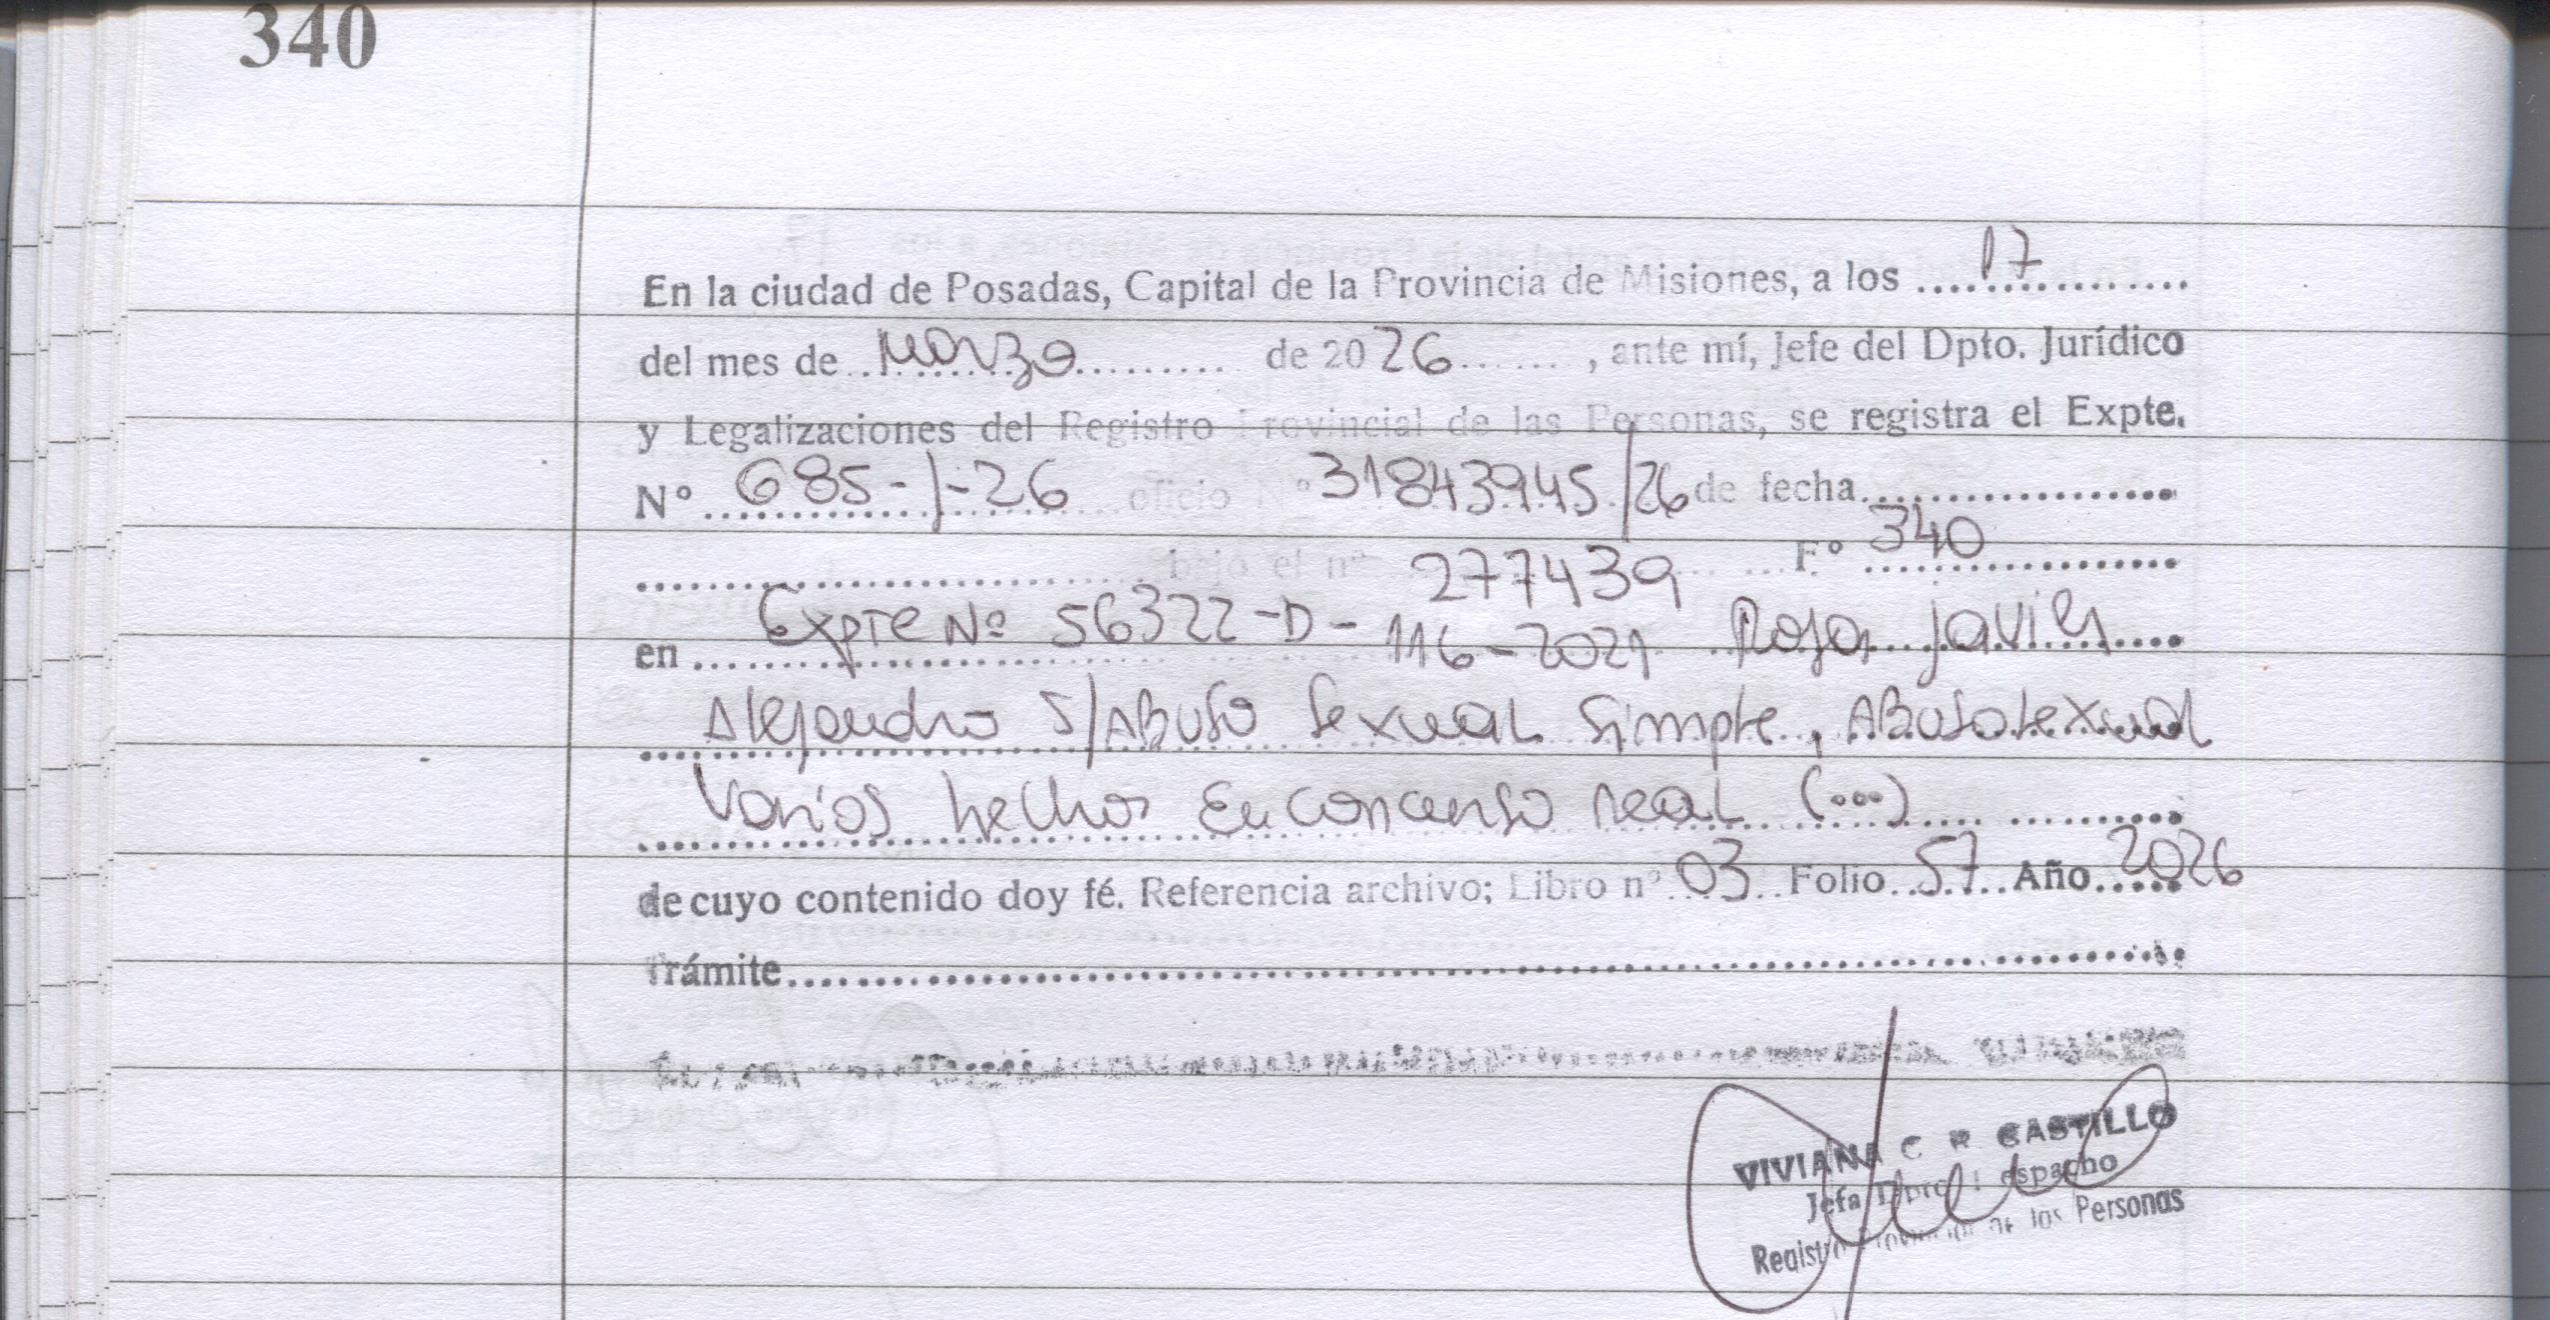 340
En la ciudad de Posadas, Capital de la Provincia de Misiones, a los 17
del mes de Marzo de 2026, ante mí, Jefe del Dpto. Jurídico
y Legalizaciones del Registro Provincial de las Personas, se registra el Expte.
N° 685-J-26 oficio N° 31843945/26 de fecha
bajo el n° 277439 F° 340
en Expte Nº 56322-D-116-2021 Javier
Alejandro S/Abuso Sexual Simple, Abuso Sexual
Varios hechos En concurso real (...)
de cuyo contenido doy fé. Referencia archivo; Libro n° 03 Folio 57 Año 2026
Trámite
VIVIANA C R CASTILLO
Jefa Dpto Despacho
Registro Provincial de las Personas